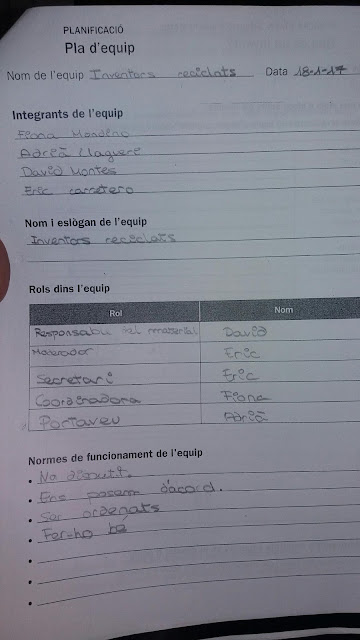 PLANIFICACIÓ
Pla d'equip
Nom de l'equip Inventors reciclats Data 18-1-17
Integrants de l'equip
Fiona Mondino
Adrià Llagueri
David Montes
Eric carretero
Nom i eslògan de l'equip
Inventors reciclats
Rols dins l'equip
Rol Nom
Responsable del material David
Moderador Eric
Secretari Eric
Coordinadora Fiona
Portaveu Adrià
Normes de funcionament de l'equip
• No discutir.
• Ens posem d'acord.
• Ser ordenats
• Fer-ho bé